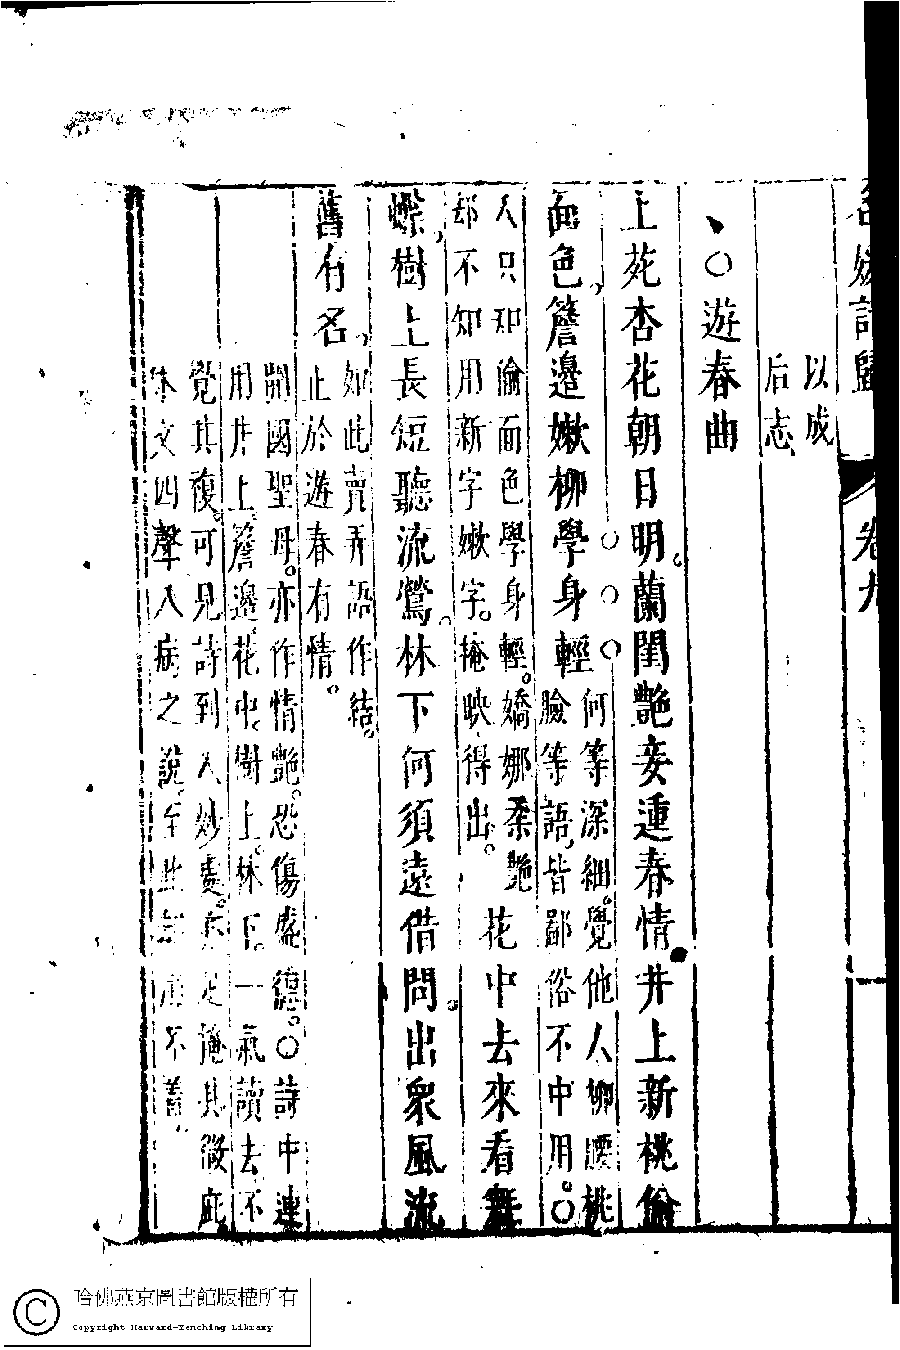 名媛詩歸 卷九
以成
后志
、○遊春曲
上苑杏花朝日明。蘭閨艷妾連春情井上新桃偷
面色,簷邊嫩柳學身輕何等深細。覺他人柳腰桃
臉等語,皆鄙俗不中用。○
人只知論面色學身輕。嬌娜柔艷
却不知用新字嫩字。掩映得出。花中去來看舞
蝶,樹上長短聽流鶯。林下何須遠借問。出衆風流
舊有名,如此賣弄語作結。
止於遊春有情。
開國聖母。亦作情艷。恐傷盛德。○詩中連
用井上簷邊花中樹上。林下。一氣讀去不
覺其複。可見詩到入妙處。亦足掩其微疵
休文四聲八病之說。至此不着。
哈佛燕京圖書館版權所有
Copyright Harvard-Yenching Library